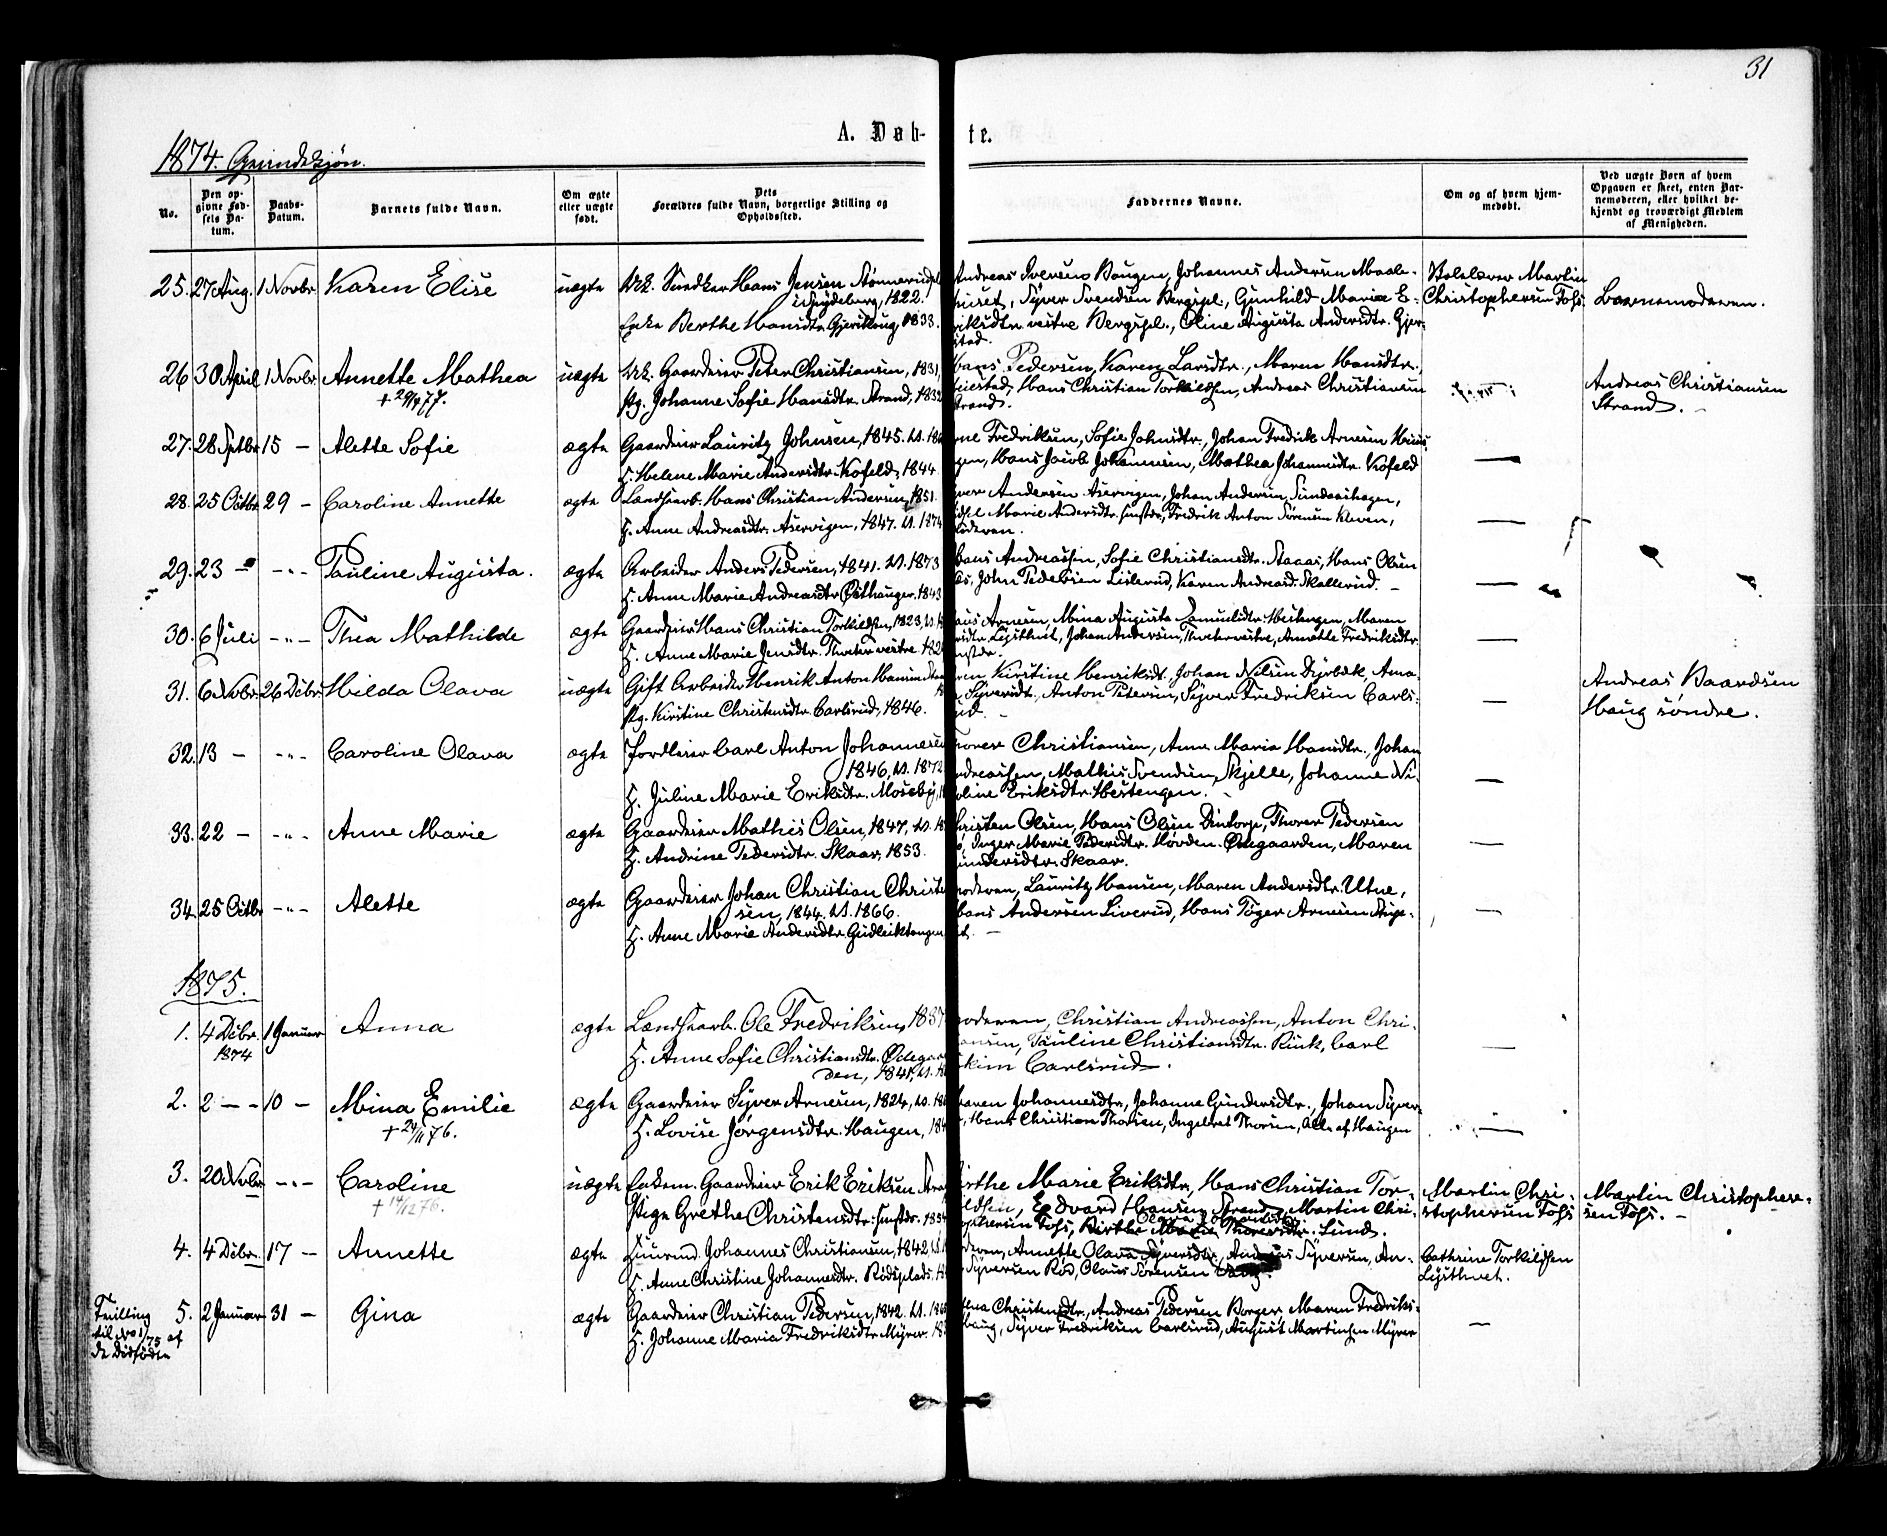 31
A. Døb-te.
1874. Grimdsjøn.
No.
Den op-
givne Fød-
sels Da-
tum.
Daabs-
Datum.
Barnets fulde Navn.
Om ægte
eller uægte
født.
Dets
Forældres fulde Navn, borgerlige Stilling og
Opholdssted.
Faddernes Navne.
Om og af hvem hjem-
medøbt.
Ved uægte Børn af hvem
Opgaven er skeet, enten Bar-
nemoderen, eller hvilket be-
kjendt og troværdigt Medlem
af Menigheden.
25. 27 Aug. 1 Novbr Karen Elise uægte Hans Jensen
1822.
Enke Berthe Hansdtr. 1833.
Andreas Iversen Haugen, Johannes Andersen
Syver Svendsen Bergspl., Gunhild Marie E-
riksdtr. vestre Bergspl., Oline Augusta Andersdtr. Gjer-
stad.
Skolelærer Martin
Christophersen Foss.
Barnemoderen.
26 30 April 1 Novbr. Annette Mathea uægte Gaardeier Peter Christiansen, 1831,
+ 29/4 77.
Pg. Johanne Sofie Hansdtr. Strand, 1832
Hans Pedersen, Karen Larsdtr., Maren Hansdtr.
Hans Christian Torkildsen, Andreas Christiansen
Strand.
Andreas Christiansen
Strand. –
27. 28 Septbr. 15 – Alette Sofie ægte Gaardeier Lauritz Johnsen, 1845.
H. Helene Marie Andersdtr. Kofeld, 1844.
Fredriksen, Sofie Johnsdtr., Johan Fredrik Arnesen
Hans Jacob Johannesen, Mathea Johannesdtr. Kofeld
—
28. 25 Octbr. 29 – Caroline Annette ægte Landhaarb. Hans Christian Andersen, 1851.
H. Anne Andreasdtr. Aservigen, 1847. V. 1874
Andersen Aservigen, Johan Andersen Sundeashagen,
Marie Andersdtr. smstds., Fredrik Anton Sørensen Kleven,
Moderen.
—
29. 23 – - " - Pauline Augusta. ægte Arbeider Anders Pedersen, 1841. V. 1873
H. Anne Marie Andreasdtr. Østhaugen. 1843
Andreassen, Sofie Christiansdtr. Staaas, Hans Olsen
John Pedersen Lislerud, Karen Andreasd. Skallerud. –
—
30. 6 Juli - " - Thea Mathilde ægte Gaardeier Hans Christian Torkildsen, 1823,
H. Anne Marie Jensdtr. Thveter vestre
Arnesen, Mina Augusta Hestengen, Maren
Lysthuet, Johan Andersen, Thveter vestre, Annette Fredriksdtr.
smstds.
—
31. 6 Novbr. 26 Decbr. Hilda Olava uægte Gift Arbeider Henrik Anton Hansen
Pg. Kirstine Christensdtr. Carlsrud, 1846.
Kirstine Henriksdt. Johan Nilsen Dyrbæk, Ama-
Syversdt., Anton Petersen, Syver Fredriksen Carls-
rud. –
—
Andreas Baardsen
Haug søndre.
32. 13 – - " - Caroline Olava ægte Jordleier Carl Anton Johannesen
1846, V. 1872
H. Juline Marie Eriksdtr. Moseby,
Thorer Christiansen, Anne Maria Hansdtr., Johan
Andreassen, Mathis Svendsen, Skjelle, Johanne Ni-
coline Eriksdtr. Hestengen.
—
33. 22 – - " - Anne Marie ægte Gaardeier Mathis Olsen, 1847,
H. Andrine Pedersdtr. Skaar, 1853.
Christen Olsen, Hans Olsen Dintorp, Thorer Pedersen
Inger Marie Pedersdtr. Høvden. Ødegaarden, Maren
Gundersdtr. Skaar.
—
34. 25 Octbr - " - Alette ægte Gaardeier Johan Christian Christen-
sen, 1844. V. 1866.
H. Anne Marie Andersdtr. Gudleiktangen
Moderen, Lauritz Hansen, Maren Andersdtr. Utne,
Hans Andersen Liverud, Hans Tøger Arnesen
—
1875.
1. 4 Decbr. 1 Januar Anna ægte Landhaarb. Ole Fredriksen, 1837
1874
H. Anne Sofie Christiansdtr. Ødegaar-
den, 1841,
Moderen, Christian Andreassen, Anton Chri-
stiansen, Pauline Christiansdtr. Rink, Carl
Carlsrud.
—
2. 2 – – 10 – Mina Emilie ægte Gaardeier Syver Arnesen, 1824,
+ 24/11 76.
H. Lovise Jørgensdtr. Haugen,
Maren Johannesdtr., Johanne Gundersdtr., Johan Syver-
Hans Christian Thorsen, Ingebret Thorsen, Alle af Haugen
—
3. 20 Novbr. - " - Caroline uægte Enkem. Gaardeier Erik Eriksen
+ 14/12 76.
Pige Grethe Christensdtr. smstds. 1854
Birthe Marie Eriksdtr., Hans Christian Tor-
kildsen, Edvard Hansen Strand, Martin Chri-
stophersen Foss, Birthe Marie Thoresdtr. Lund.
Martin Chri-
stophersen Foss
Martin Christopher-
sen Foss. –
4. 4 Decbr. 17 – Annette ægte Johannes Christiansen, 1842,
H. Anne Christine Johannesdtr. Rødsplads,
Moderen, Annette Olava Syversdtr., Andreas Syversen, An-
Syversen Rød, Claus Sørensen
Cathrine Torkildsen
Lysthuet.
Tvilling
til No 1/75 af
de Dødfødte
5. 2 Januar 31 – Gina ægte Gaardeier Christian Pedersen, 1842.
H. Johanne Maria Fredriksdtr. Myrer.
Christensdtr., Andreas Pedersen Borger, Maren Fredriks-
Haug, Syver Fredriksen Carlsrud, August Martinsen Myrer
—